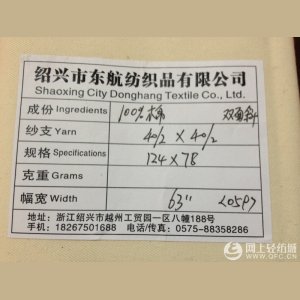 绍兴市东航纺织品有限公司
Shaoxing City Donghang Textile Co., Ltd.
成份Ingredients 100%棉 双面斜
纱支Yarn 40/2 X 40/2
规格Specifications 124X78
克重Grams
幅宽Width 63"
地址:浙江绍兴市越州工贸园一区八幢188号
手机:18267501688 电话/传真:0575-88358286
网上轻纺城
WWW.QFC.CN